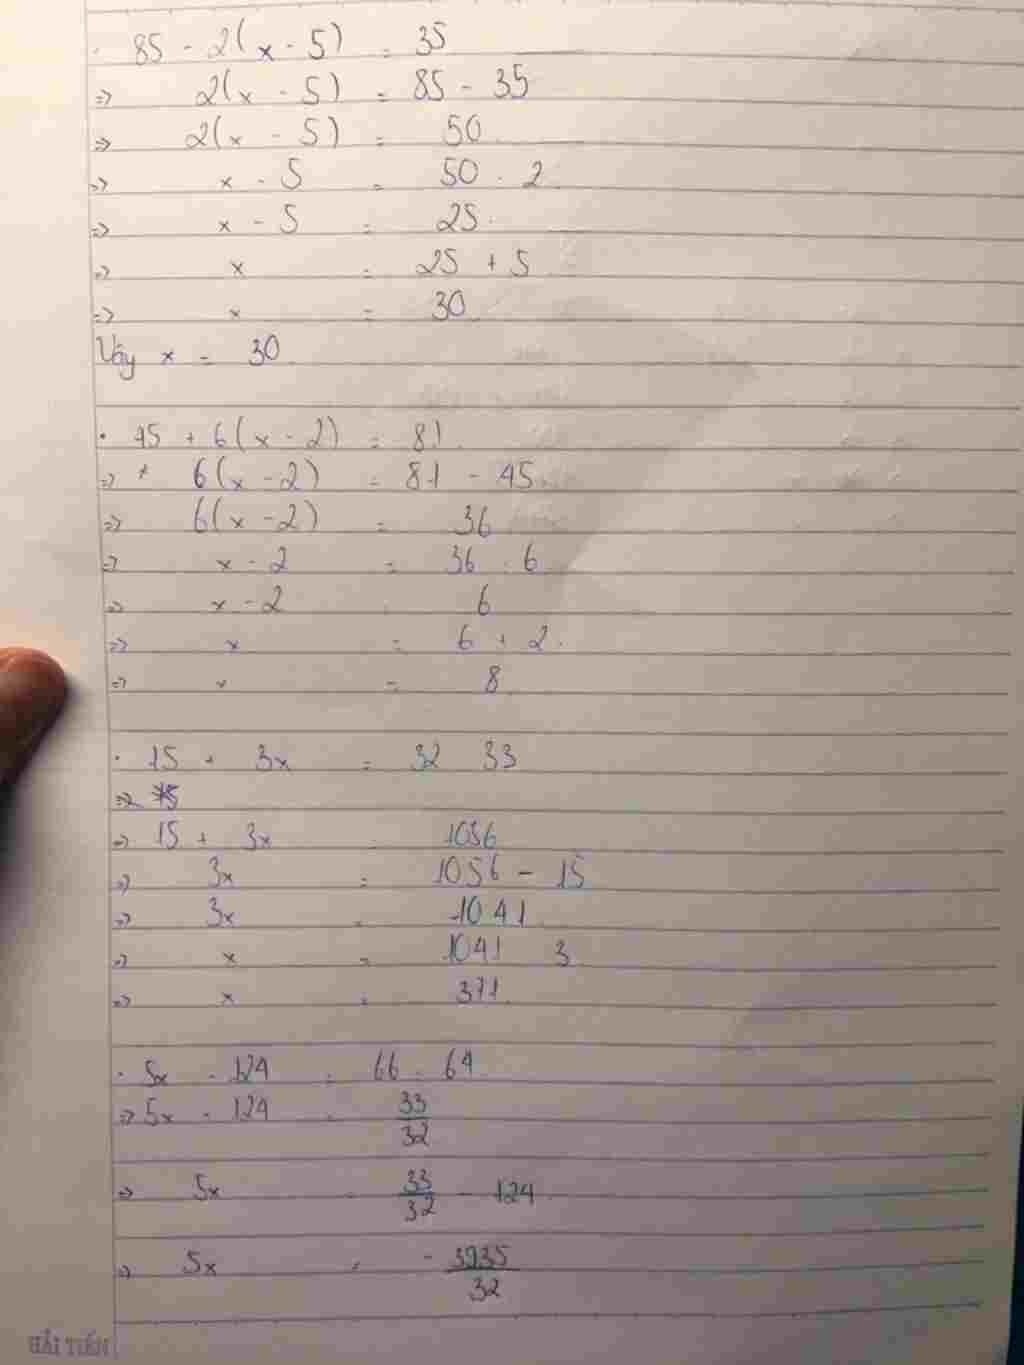 · 85 - 2(x - 5) = 35
=> 2(x - 5) = 85 - 35
=> 2(x - 5) = 50
=> x - 5 = 50 : 2
=> x - 5 = 25
=> x = 25 + 5
=> x = 30
Vậy x = 30
· 45 + 6(x - 2) = 81
=> 6(x - 2) = 81 - 45
=> 6(x - 2) = 36
=> x - 2 = 36 : 6
=> x - 2 = 6
=> x = 6 + 2
=> x = 8
· 15 + 3x = 32 33
=>
=> 15 + 3x = 1056
=> 3x = 1056 - 15
=> 3x = 1041
=> x = 1041 3
=> x = 371
· 5x - 124 = 66 : 64
=> 5x - 124 = 33/32
=> 5x = 33/32 - 124
=> 5x = -3935/32
HẢI TIẾN